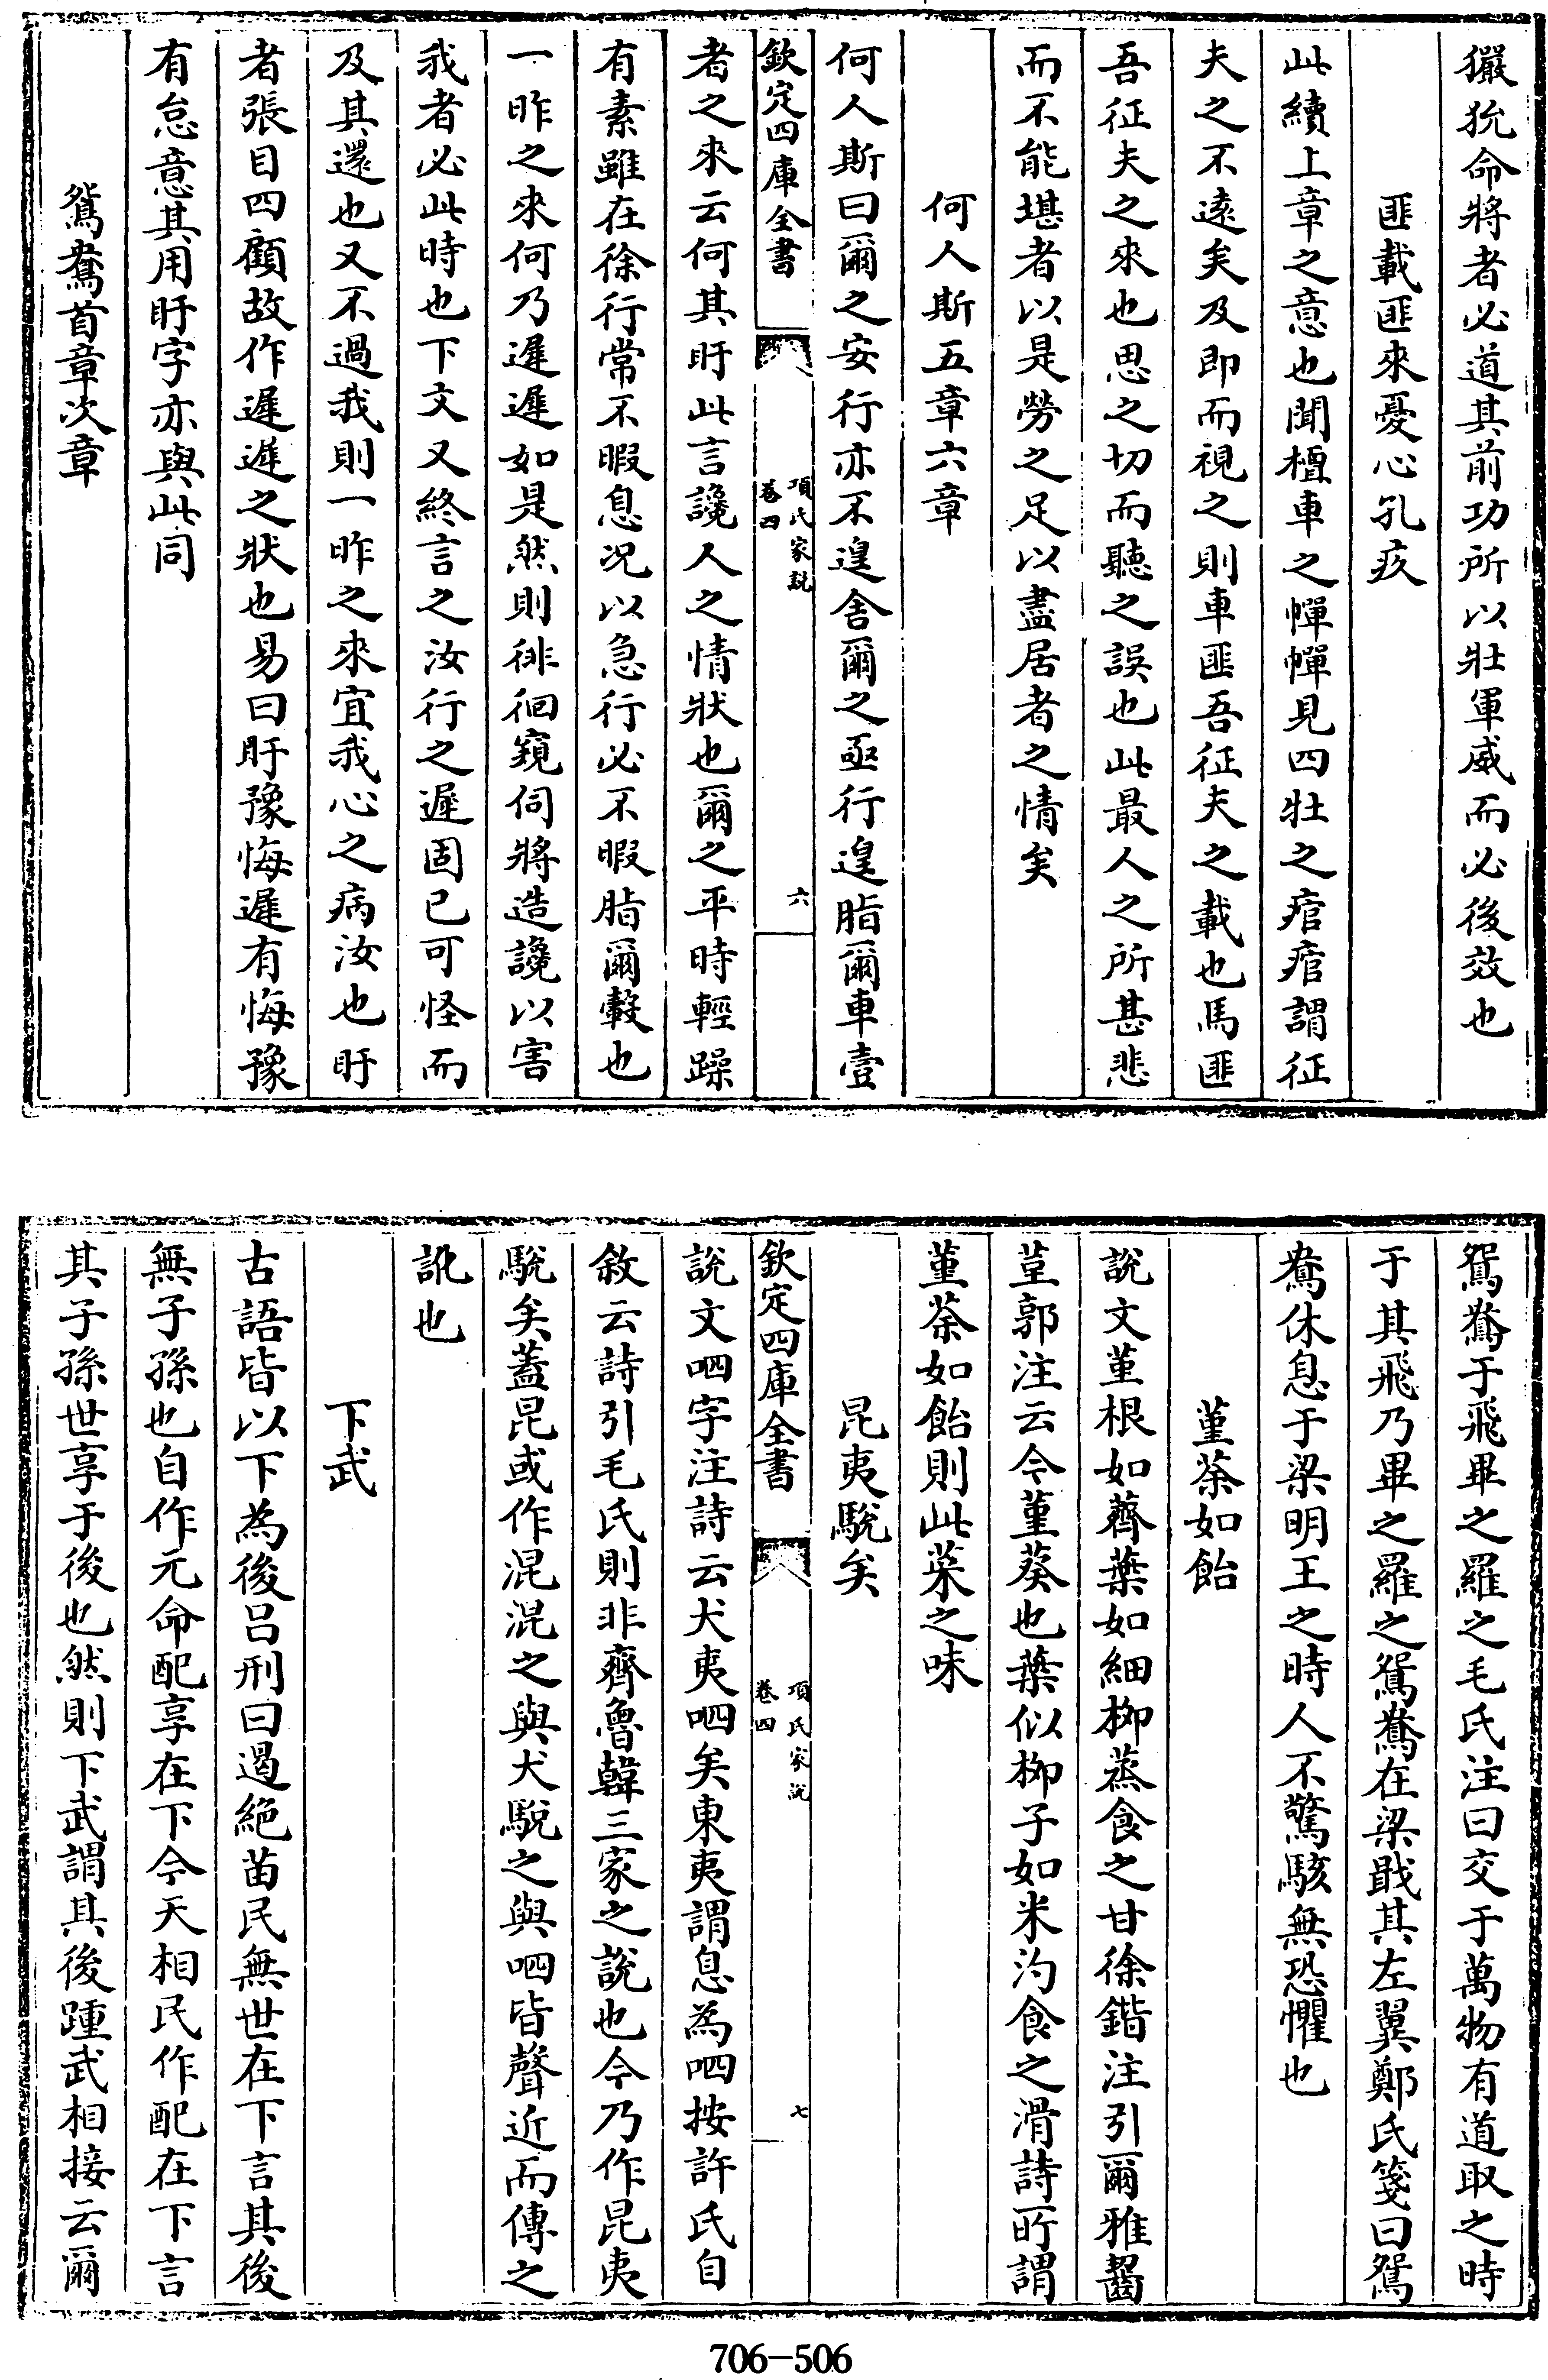 玁狁命將者必道其前功所以壯軍威而必後效也
匪載匪來憂心孔疚
此續上章之意也聞檀車之幝幝見四牡之痯痯謂征
夫之不遠矣及即而視之則車匪吾征夫之載也馬匪
吾征夫之來也思之切而聽之誤也此最人之所甚悲
而不能堪者以是勞之足以盡居者之情矣
何人斯五章六章
何人斯曰爾之安行亦不遑舍爾之亟行遑脂爾車壹
欽定四庫全書
項氏家說
卷四
六
者之來云何其盱此言讒人之情狀也爾之平時輕躁
有素雖在徐行常不暇息况以急行必不暇脂爾轂也
一昨之來何乃遲遲如是然則徘徊窺伺將造讒以害
我者必此時也下文又終言之汝行之遲固已可怪而
及其還也又不過我則一昨之來宜我心之病汝也盱
者張目四顧故作遲遲之狀也易曰盱豫悔遲有悔豫
有怠意其用盱字亦與此同
鴛鴦首章次章
鴛鴦于飛畢之羅之毛氏注曰交于萬物有道取之時
于其飛乃畢之羅之鴛鴦在梁戢其左翼鄭氏箋曰鴛
鴦休息于梁明王之時人不驚駭無恐懼也
堇荼如飴
說文堇根如薺葉如細柳蒸食之甘徐鍇注引爾雅齧
堇郭注云今堇葵也葉似柳子如米汋食之滑詩所謂
堇荼如飴則此菜之味
昆夷駾矣
欽定四庫全書
項氏家說
卷四
七
說文呬字注詩云犬夷呬矣東夷謂息為呬按許氏自
敘云詩引毛氏則非齊魯韓三家之說也今乃作昆夷
駾矣蓋昆或作混混之與犬駾之與呬皆聲近而傳之
訛也
下武
古語皆以下為後呂刑曰遏絶苗民無世在下言其後
無子孫也自作元命配享在下今天相民作配在下言
其子孫世享于後也然則下武謂其後踵武相接云爾
706-506